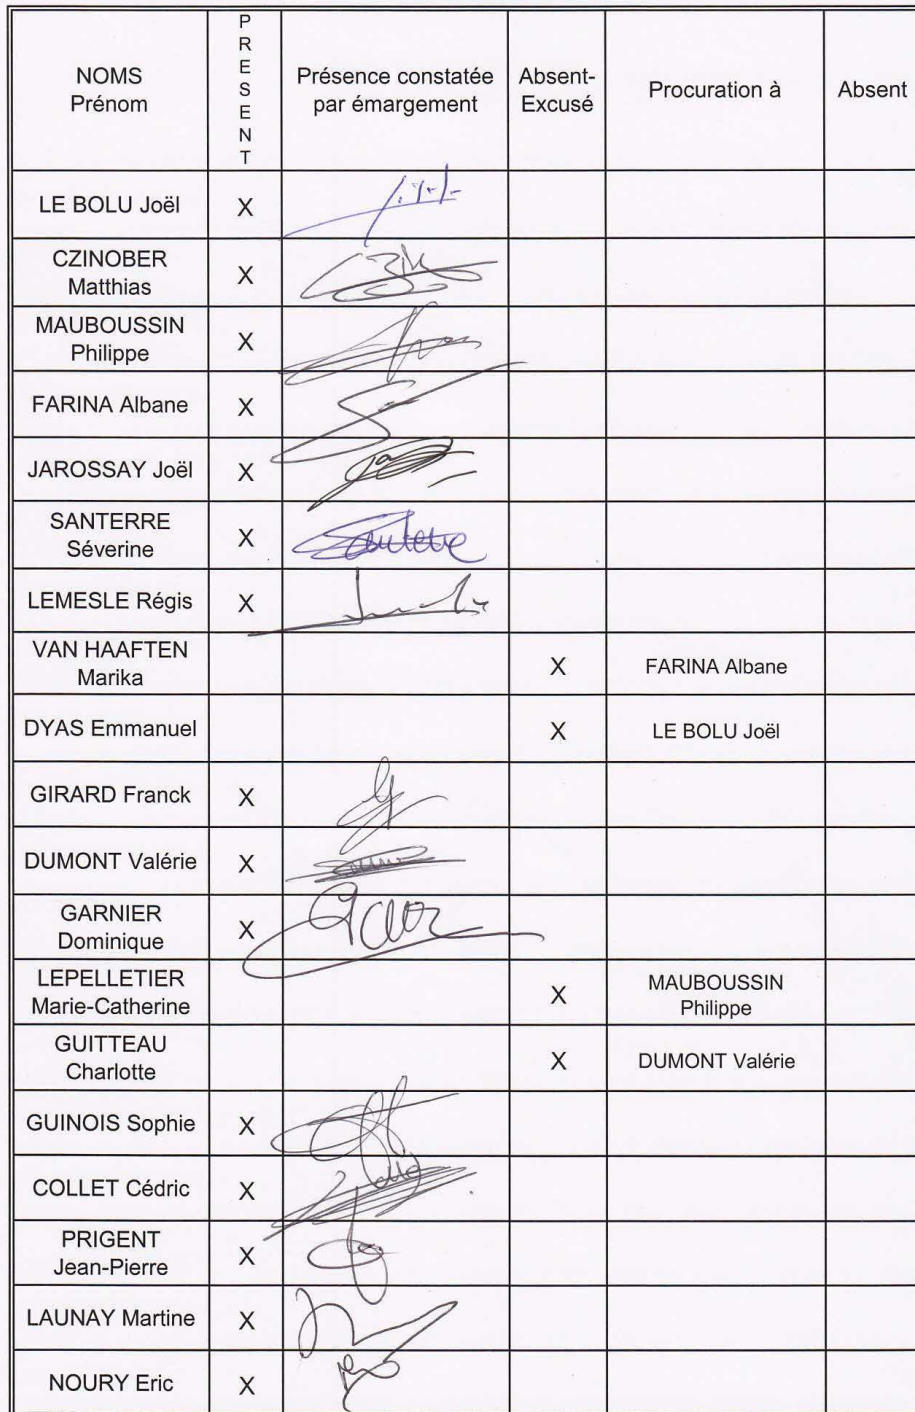 NOMS
Prénom
PRESENT
Présence constatée
par émargement
Absent-
Excusé
Procuration à
Absent
LE BOLU Joël
X
CZINOBER
Matthias
X
MAUBOUSSIN
Philippe
X
FARINA Albane
X
JAROSSAY Joël
X
SANTERRE
Séverine
X
Santerre
LEMESLE Régis
X
VAN HAAFTEN
Marika
X
FARINA Albane
DYAS Emmanuel
X
LE BOLU Joël
GIRARD Franck
X
DUMONT Valérie
X
GARNIER
Dominique
X
LEPELLETIER
Marie-Catherine
X
MAUBOUSSIN
Philippe
GUITTEAU
Charlotte
X
DUMONT Valérie
GUINOIS Sophie
X
COLLET Cédric
X
PRIGENT
Jean-Pierre
X
LAUNAY Martine
X
NOURY Eric
X